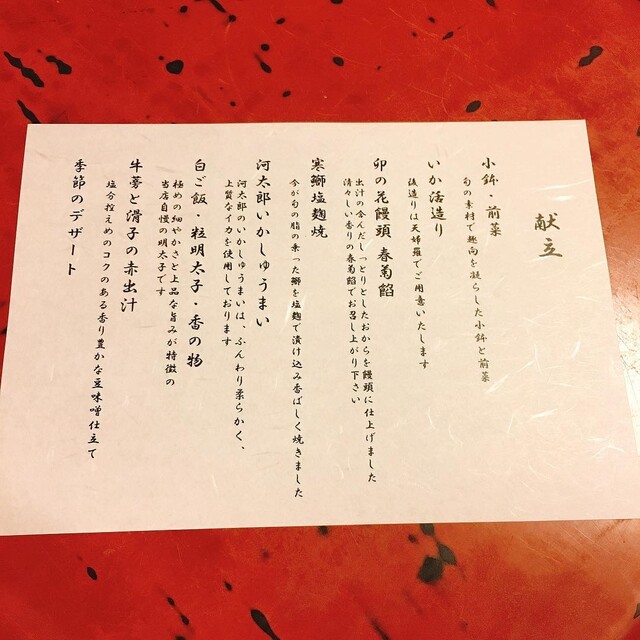 献立
小鉢・前菜
旬の素材で趣向を凝らした小鉢と前菜
いか活造り
後造りは天婦羅でご用意いたします
卯の花饅頭 春菊餡
出汁の含んだしっとりとしたおからを饅頭に仕上げました
清々しい香りの春菊餡でお召し上がり下さい
寒鰤塩麹焼
今が旬の脂の乗った鰤を塩麹で漬け込み香ばしく焼きました
河太郎いかしゅうまい
河太郎のいかしゅうまいは、ふんわり柔らかく、
上質なイカを使用しております
白ご飯・粒明太子・香の物
極めの細やかさと上品な旨みが特徴の
当店自慢の明太子です
牛蒡と滑子の赤出汁
塩分控えめのコクのある香り豊かな豆味噌仕立て
季節のデザート